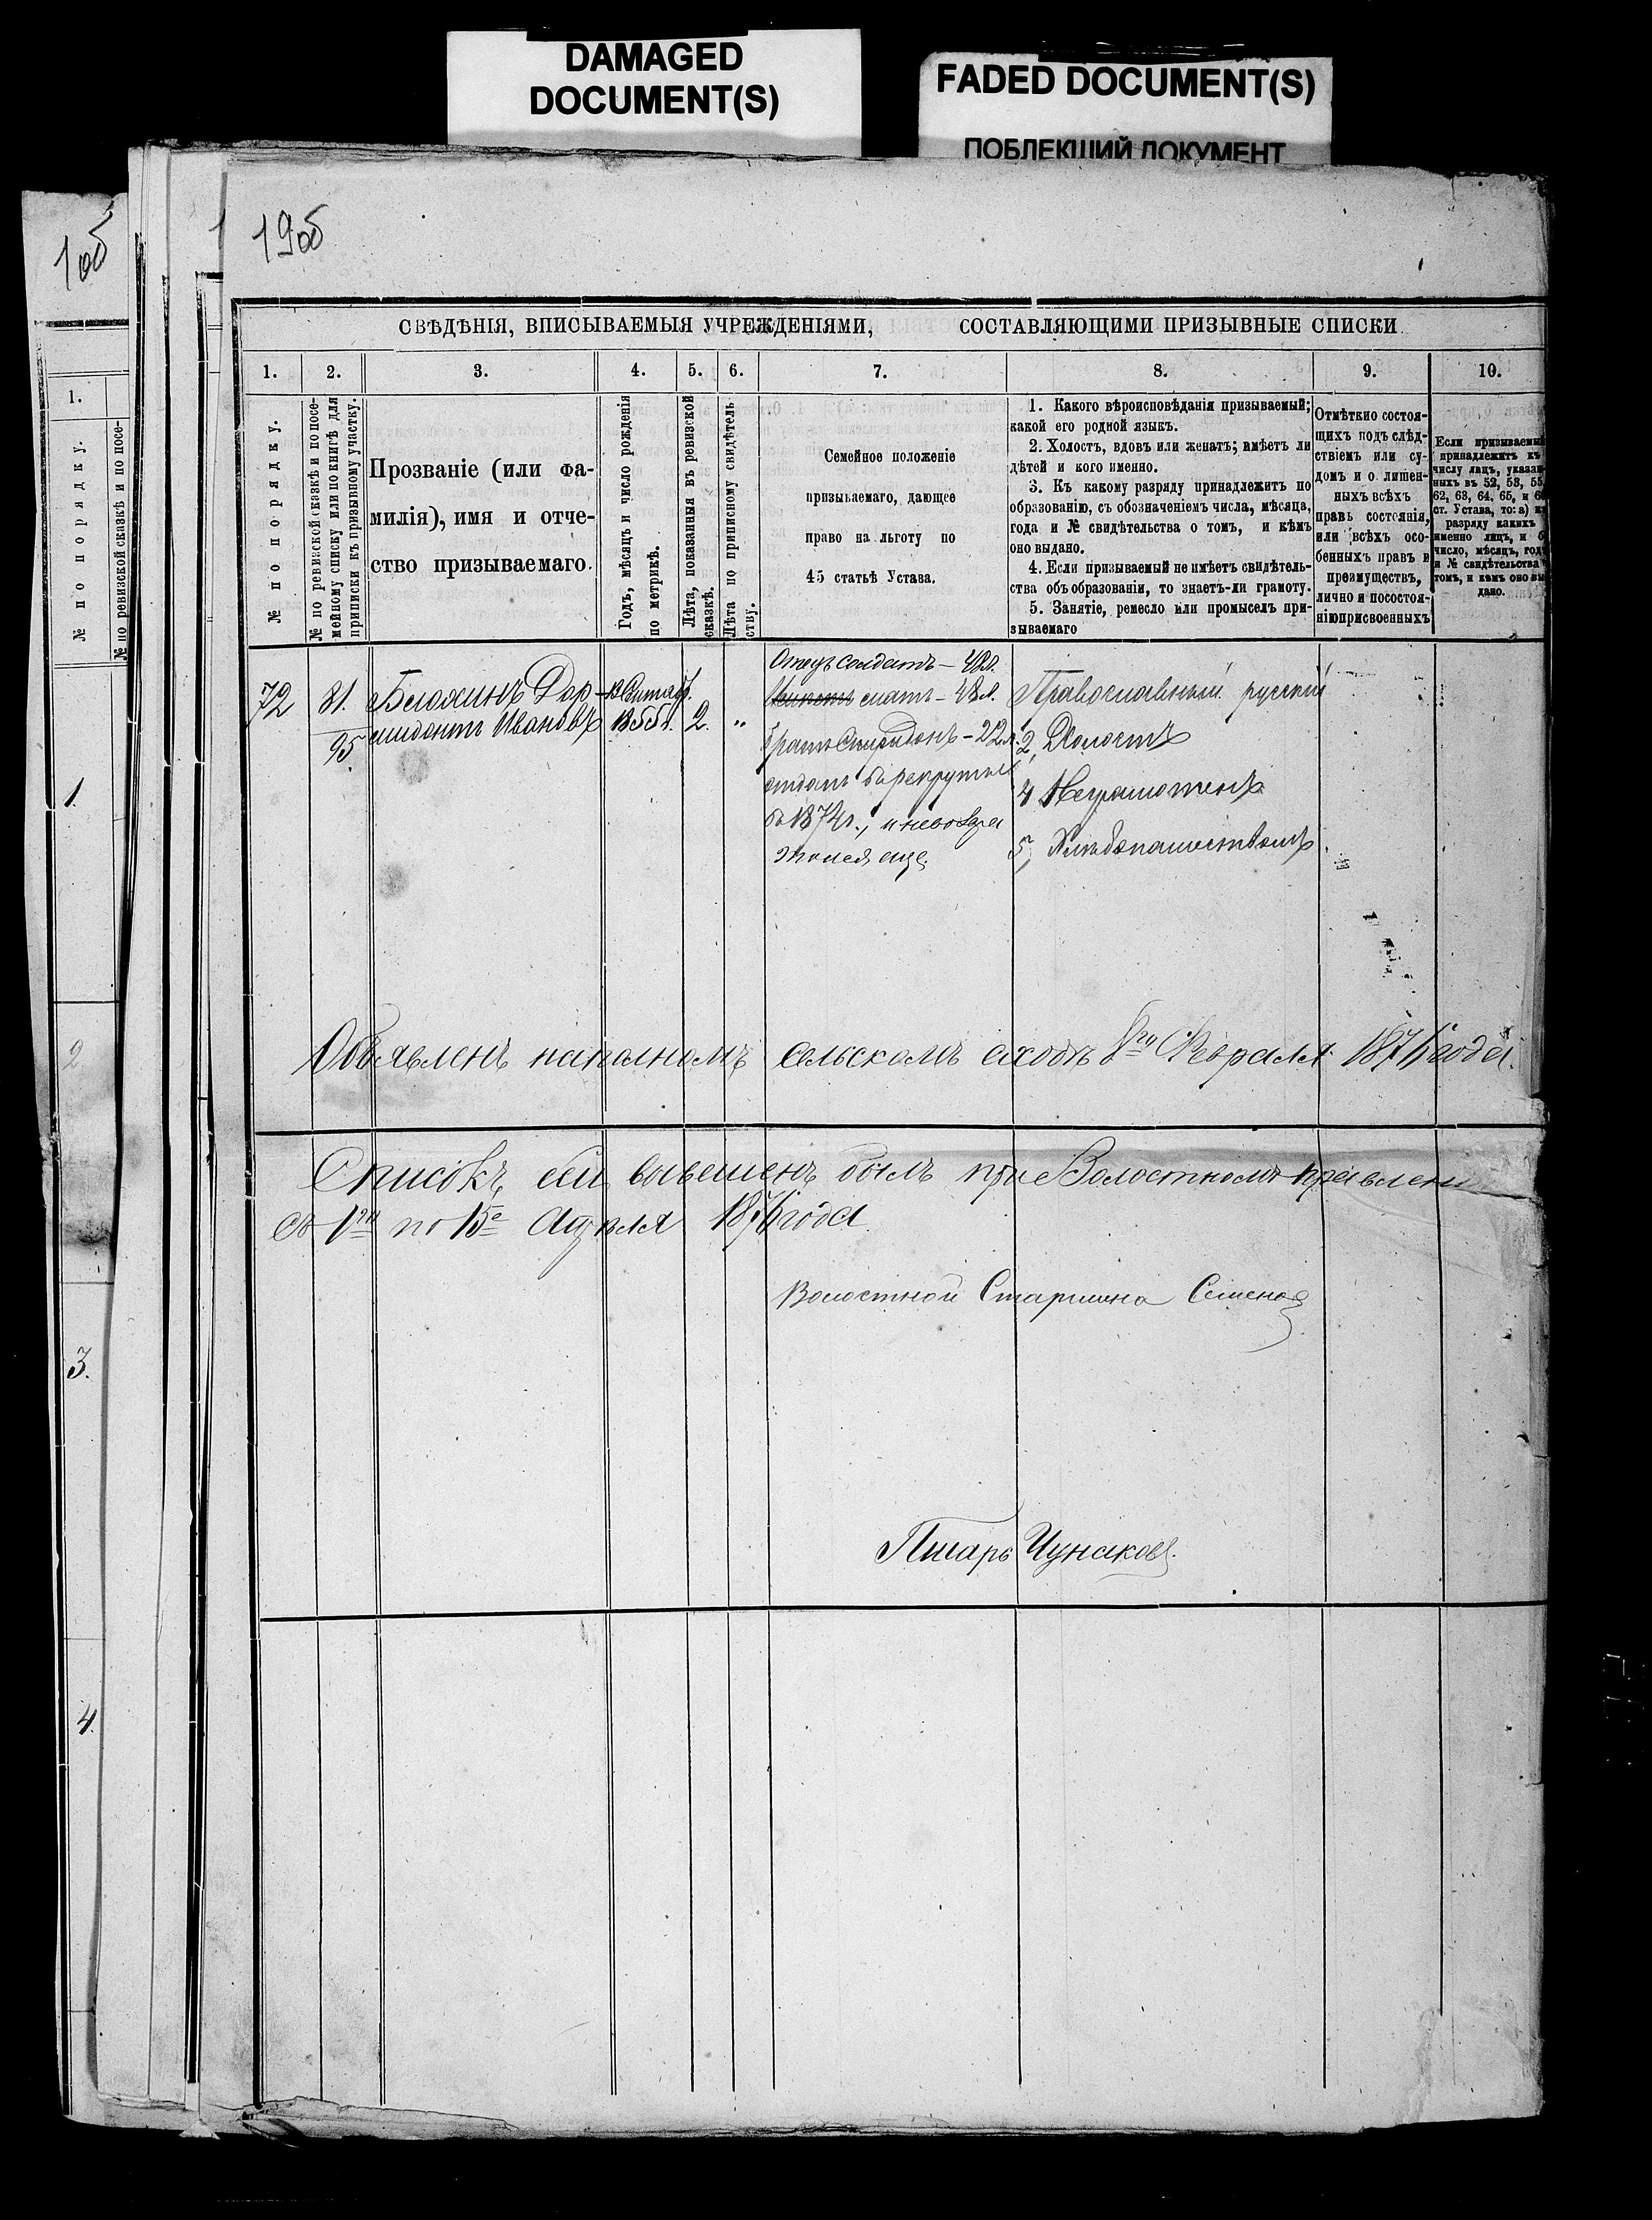 DAMAGED
DOCUMENT(S)
FADED DOCUMENT(S)
ПОБЛЕКШИЙ ДОКУМЕНТ
1об
19об
СВѢДѢНІЯ, ВПИСЫВАЕМЫЯ УЧРЕЖДЕНІЯМИ, СОСТАВЛЯЮЩИМИ ПРИЗЫВНЫЕ СПИСКИ
1. 2. 3. 4. 5. 6. 7. 8. 9. 10.
№ по порядку.
№ по ревизской сказкѣ и по посе-
мейному списку или по книгѣ для
приписки къ призывному участку.
Прозваніе (или фа-
милія), имя и отче-
ство призываемаго.
Годъ, мѣсяцъ и число рожденія
по метрикѣ.
Лѣта, показанныя въ ревизской
сказкѣ.
Лѣта по приписному свидѣтель-
ству.
Семейное положеніе
призываемаго, дающее
право на льготу по
45 статьѣ Устава.
1. Какого вѣроисповѣданія призываемый;
какой его родной языкъ.
2. Холостъ, вдовъ или женатъ; имѣетъ ли
дѣтей и кого именно.
3. Къ какому разряду принадлежитъ по
образованію, съ обозначеніемъ числа, мѣсяца,
года и № свидѣтельства о томъ, и кѣмъ
оно выдано.
4. Если призываемый не имѣетъ свидѣтель-
ства объ образованіи, то знаетъ-ли грамоту.
5. Занятіе, ремесло или промыселъ при-
зываемаго
Отмѣтки о состоя-
щихъ подъ слѣд-
ствіемъ или су-
домъ и о лишен-
ныхъ всѣхъ
правъ состоянія,
или всѣхъ осо-
бенныхъ правъ и
преимуществъ,
лично и по состоя-
нію присвоенныхъ
Если призываемый
принадлежитъ къ
числу лицъ, указан-
ныхъ въ 52, 53, 55,
62, 63, 64, 65, и
ст. Устава, то: а) къ
разряду какихъ
именно лицъ, и б)
число, мѣсяцъ, годъ
и № свидѣтельства о
томъ, и кѣмъ оно вы-
дано.
1.
№ по порядку.
№ по ревизской сказкѣ и по посе-
1.
2
3.
4.
72
81.
95
Ивановъ
2.
"
Отецъ солдатъ — 48л.
мать — 48л.
братъ Спиридонъ — 22л.
отданъ въ рекруты
въ 1874г., и невозвра
тился еще
Православный русскій
2, Холостъ
4 Неграмотенъ
5, Хлебопашествомъ
Объявленъ наполномъ сельскомъ сходѣ 8го Февраля 1876 года.
Списокъ сей вывешенъ былъ при Волостномъ правлени
съ 1го по 15е Апреля 1876 года
Волостной Старшина Семенов
Писарь Чунаковъ.